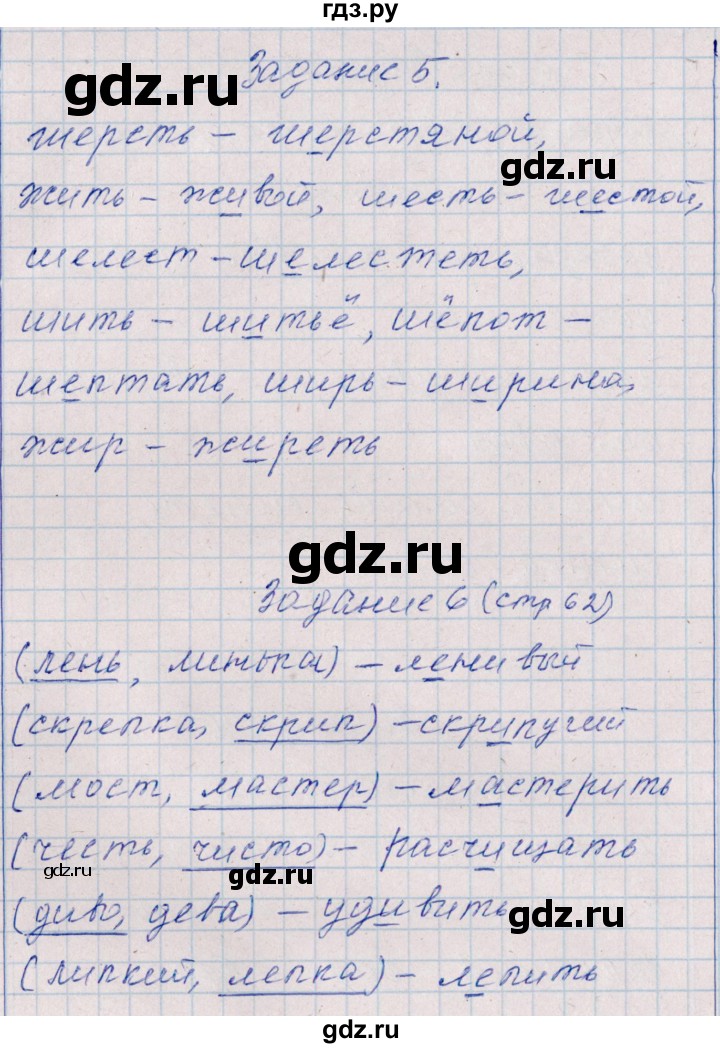 гдз.ру
Задание 5.
gdz.ru
шерсть – шерстяной,
gdz.ru
жить – живой, шесть – шестой,
шелест – шелестеть,
шить – шитьё, шёпот –
шептать, ширь – ширина,
жир – жиреть
gdz.ru
Задание 6 (стр 62)
(лень, линька) – ленивый
(скрепка, скрип) – скрипучий
(мост, мастер) – мастерить
(честь, чисто) – расчищать
gdz.ru
gdz.ru
(диво, дева) – удивить
gdz.ru
(липкий, лепка) – лепить
gdz.ru